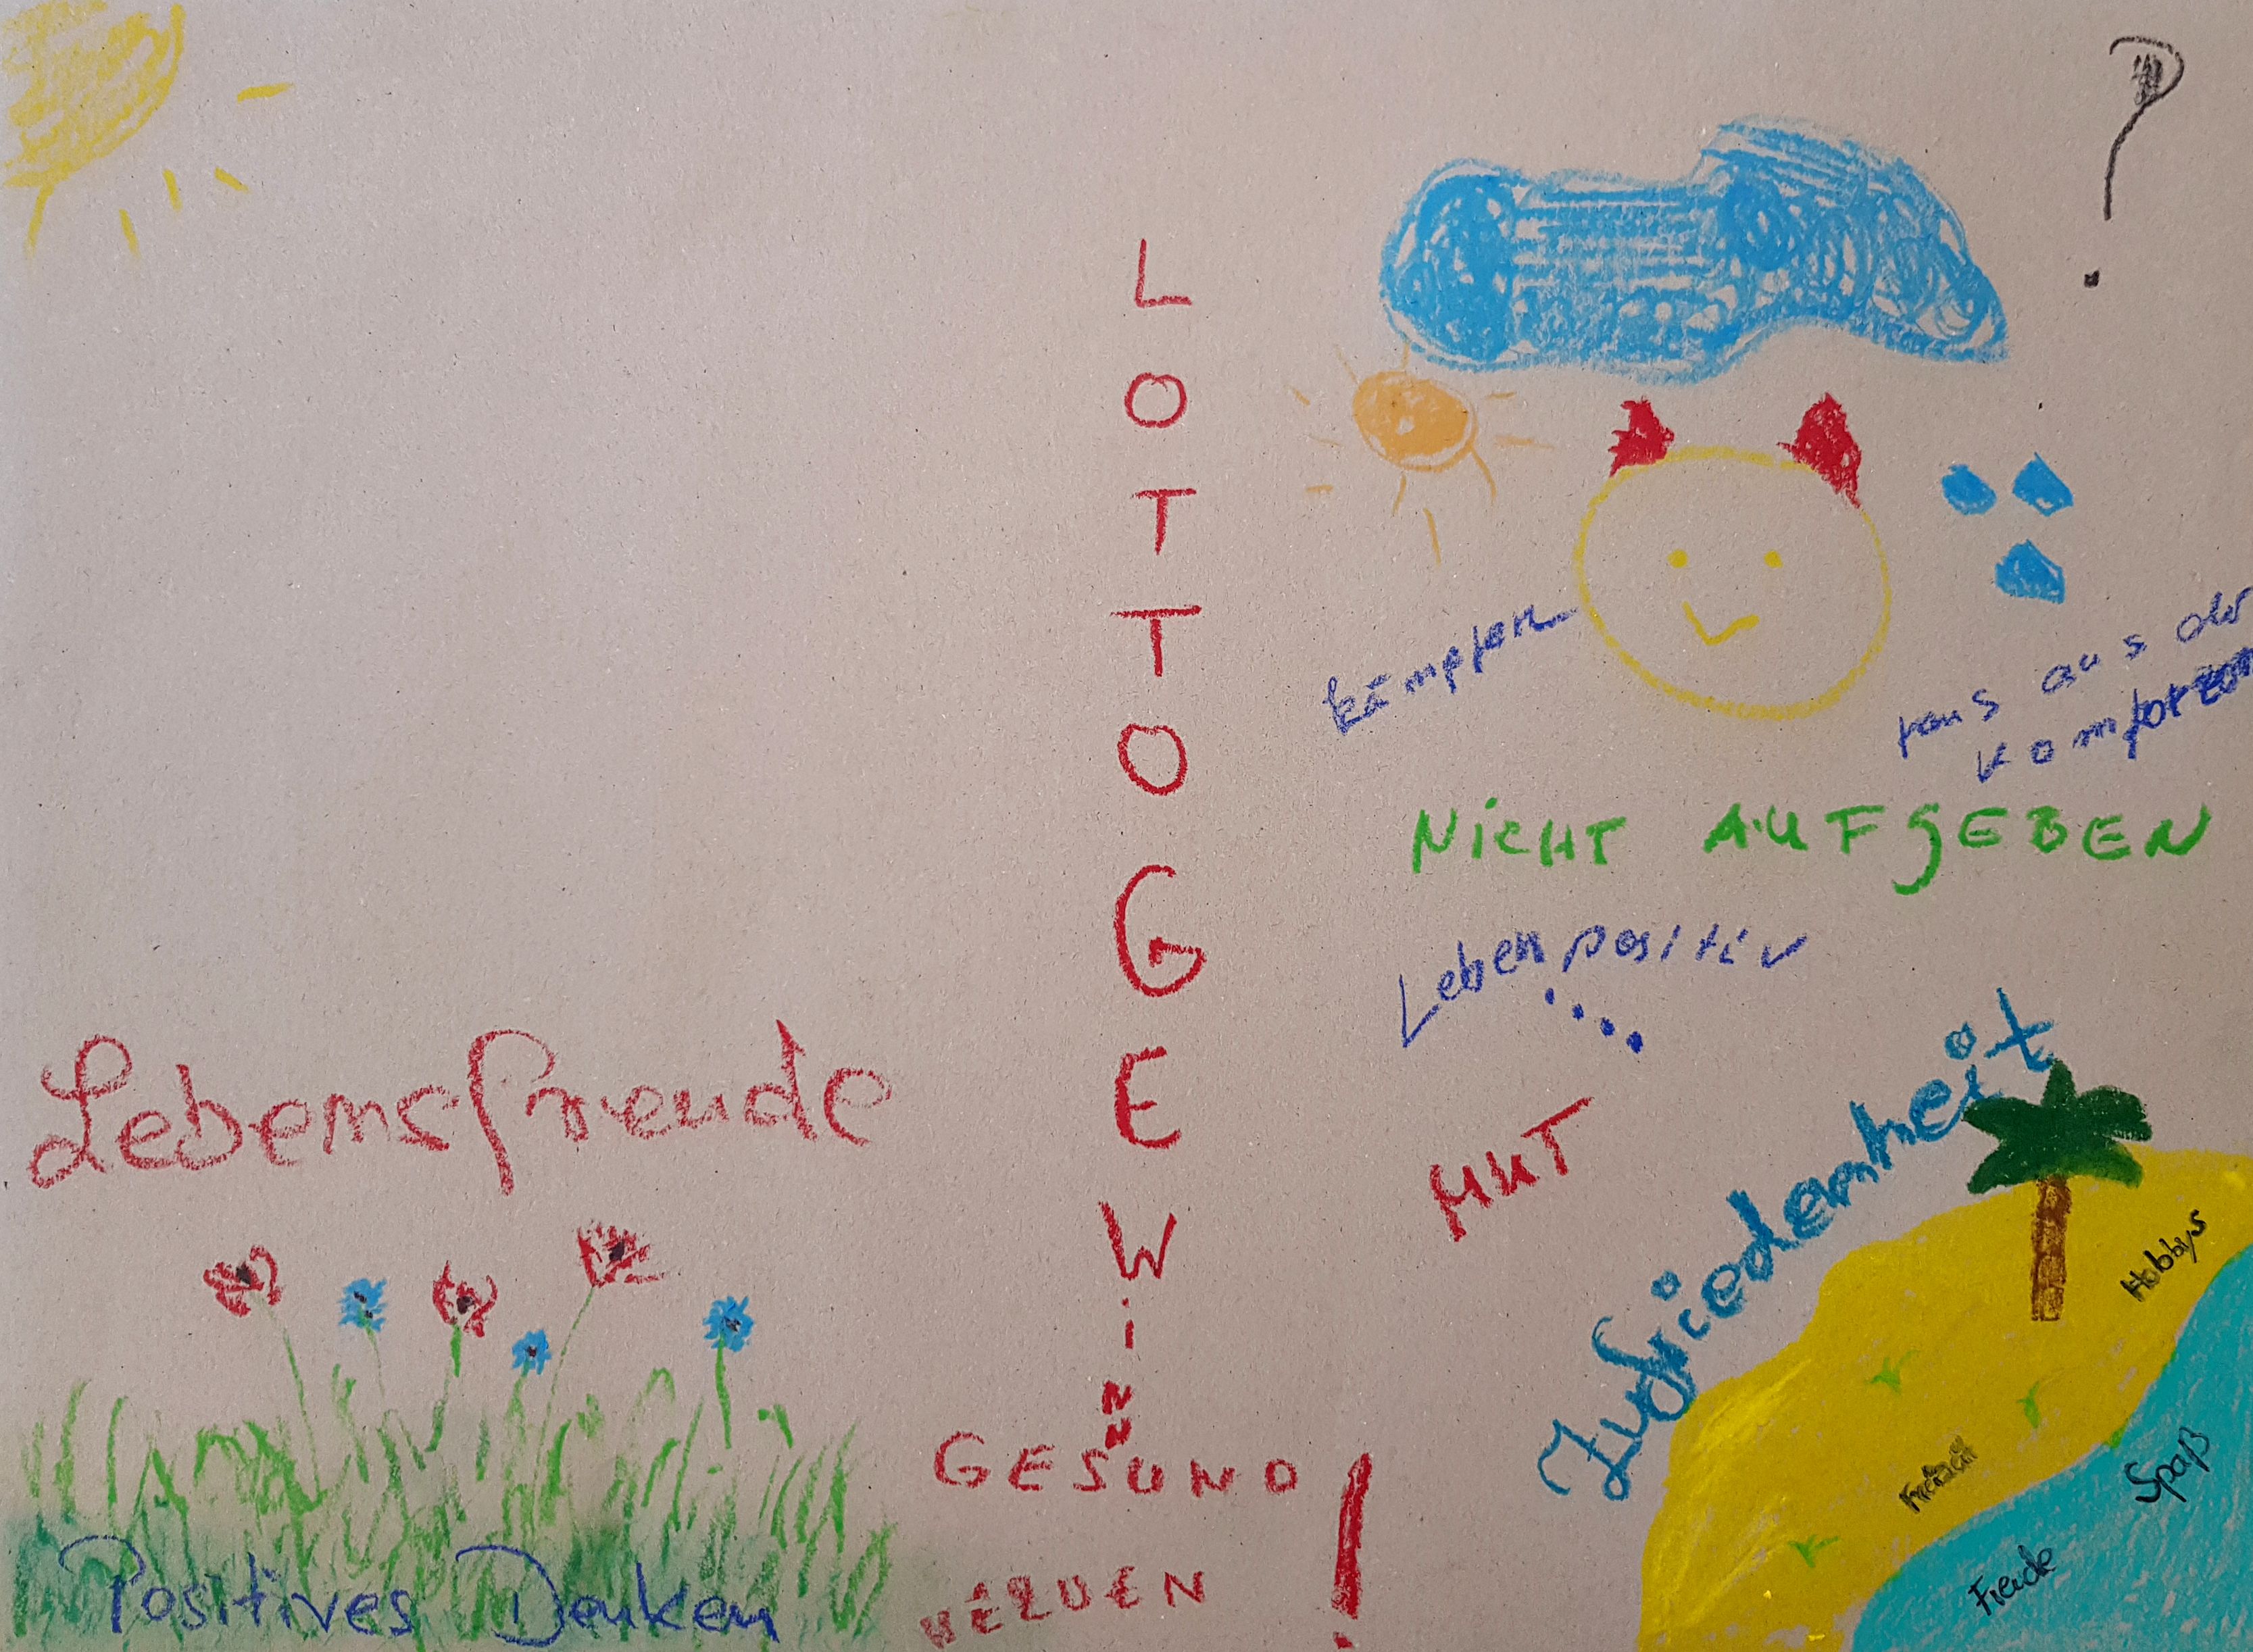 ?
LOTTOGEWINN
kämpfen
raus aus der
Komfortzone
NiCHT AUFGEBEN
Leben positiv
....
MUT
Zufriedenheit
Lebensfreude
Hobbys
Freizeit
Spaß
Freude
GESUND
WERDEN !
Positives Denken